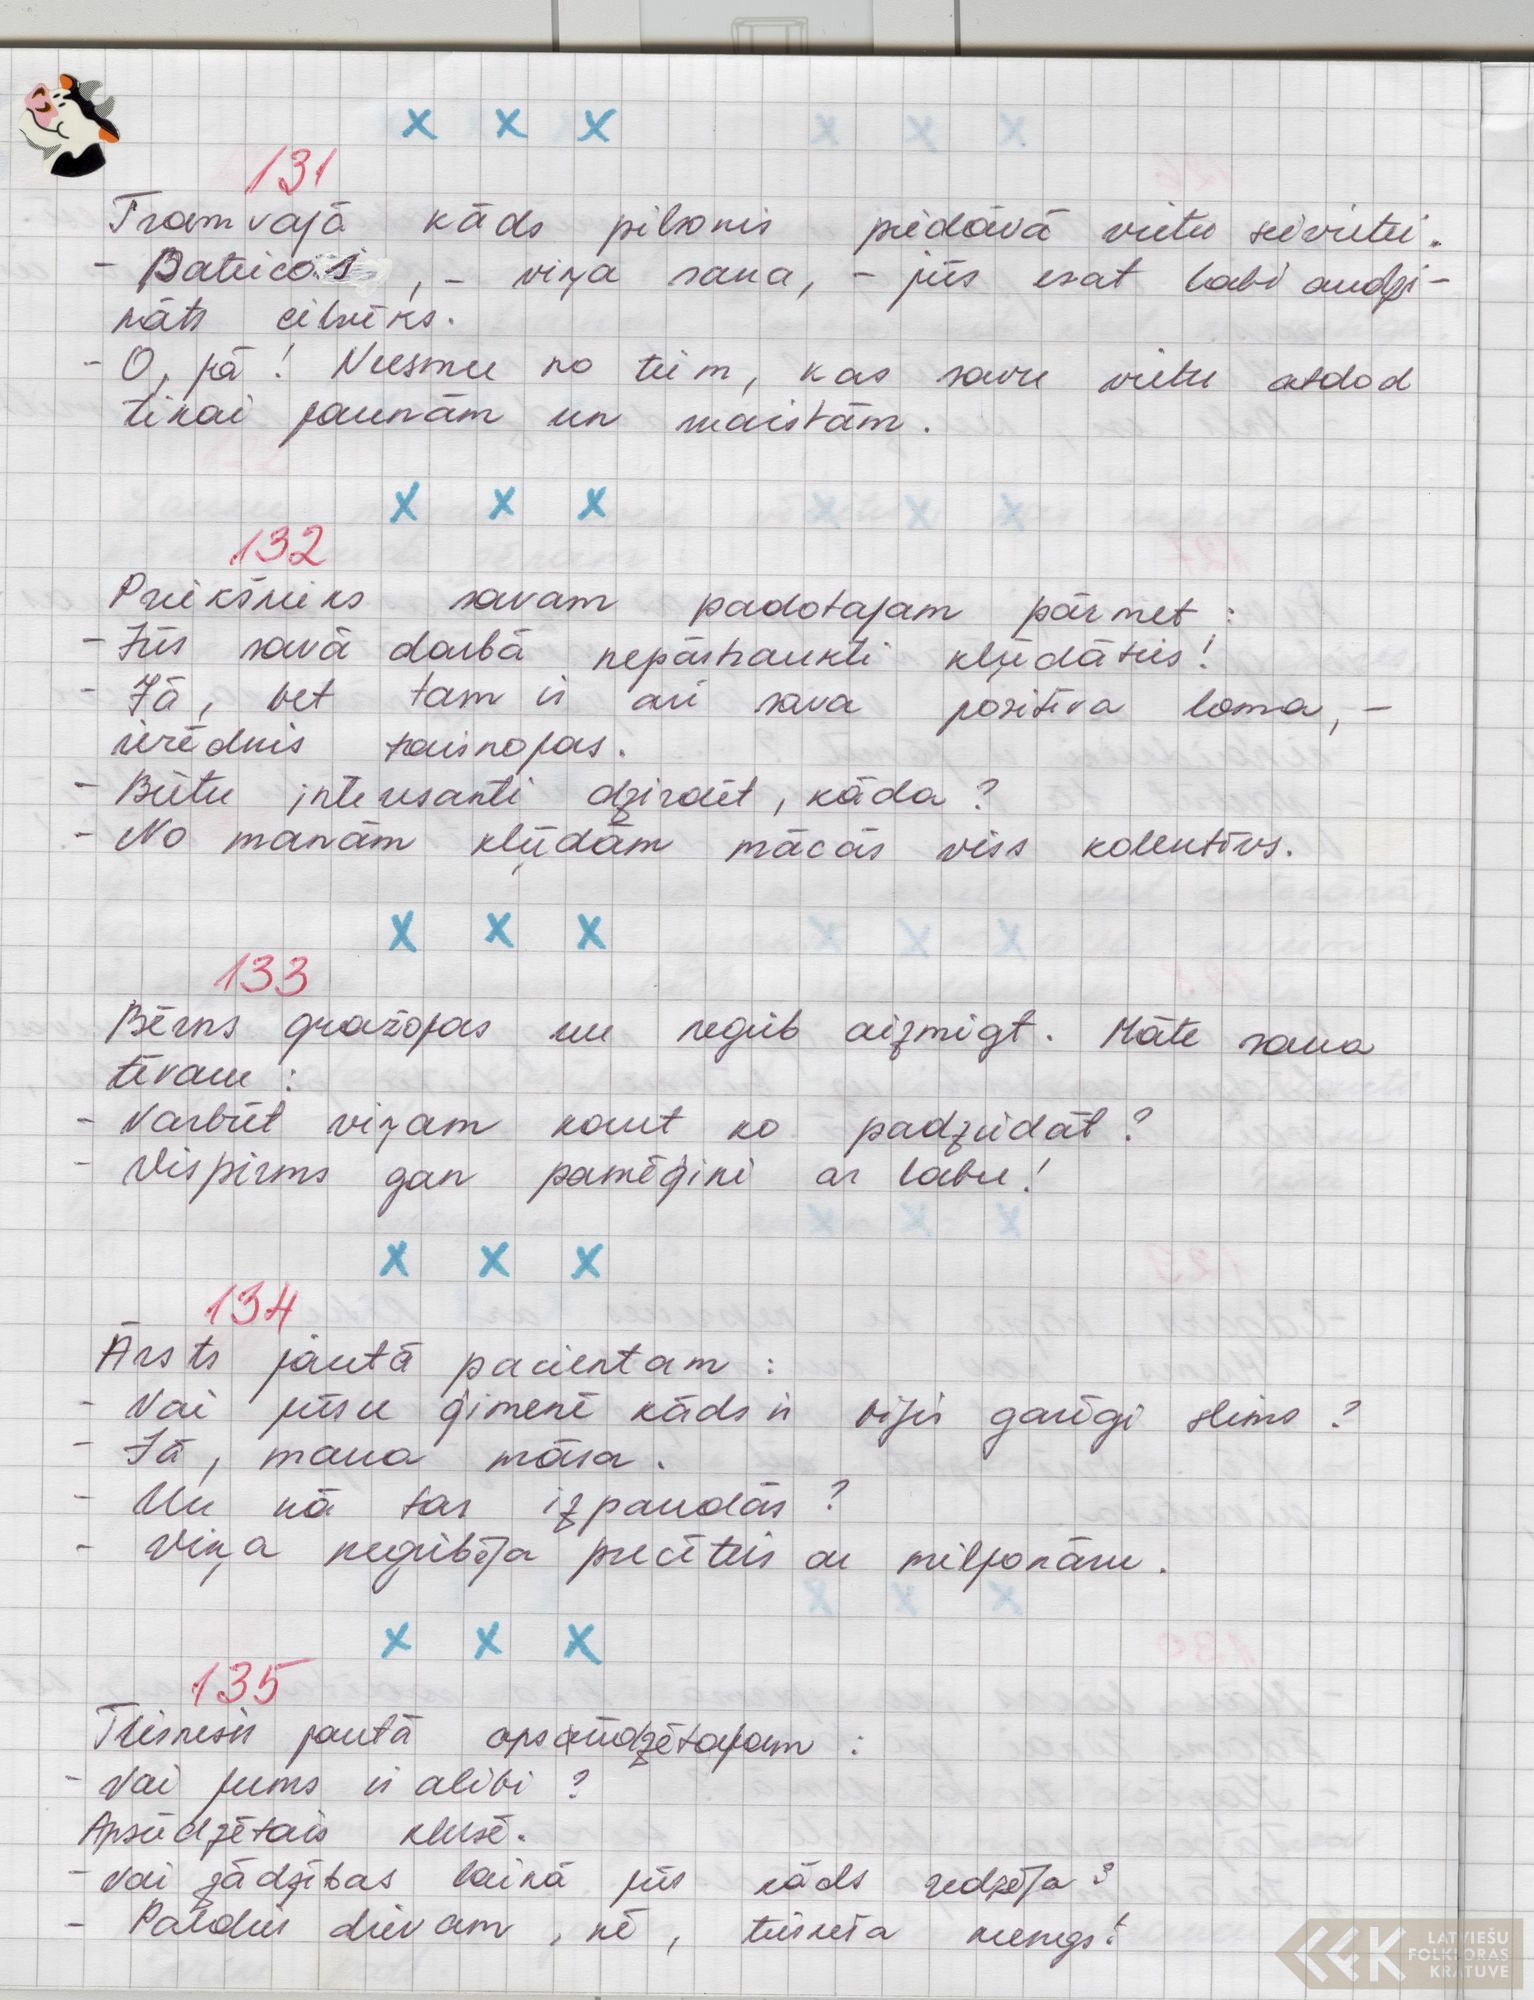 x x x
131
Tramvajā kāds pilsonis piedāvā vietu sievietei.
- Pateicos, - viņa saka, - jūs esat labi audzi-
nāts cilvēks.
- O, jā! Neesmu no tiem, kas savu vietu atdod
tikai jaunām un skaistām.
x x x
132
Priekšnieks savam padotajam pārmet:
- Jūs savā darbā nepārtraukti kļūdāties!
- Jā, bet tam ir arī sava pozitīva loma, -
ierēdnis taisnojas.
- Būtu interesanti dzirdēt, kāda?
- No manām kļūdām mācās viss kolektīvs.
x x x
133
Bērns gražojas un negrib aizmigt. Māte saka
tēvam:
- Varbūt viņam kaut ko padziedāt?
- Vispirms gan pamēģini ar labu!
x x x
134
Ārsts jautā pacientam:
- Vai jūsu ģimenē kāds ir bijis garīgi slims?
- Jā, mana māsa.
- Un kā tas izpaudās?
- Viņa negribēja precēties ar miljonāru.
x x x
135
Tiesnesis jautā apsūdzētajam:
- Vai jums ir alibi?
Apsūdzētais klusē.
- Vai zādzības laikā jūs kāds redzēja?
- Paldies dievam, nē, tiesneša kungs!
LATVIEŠU
FOLKLORAS
KRĀTUVE